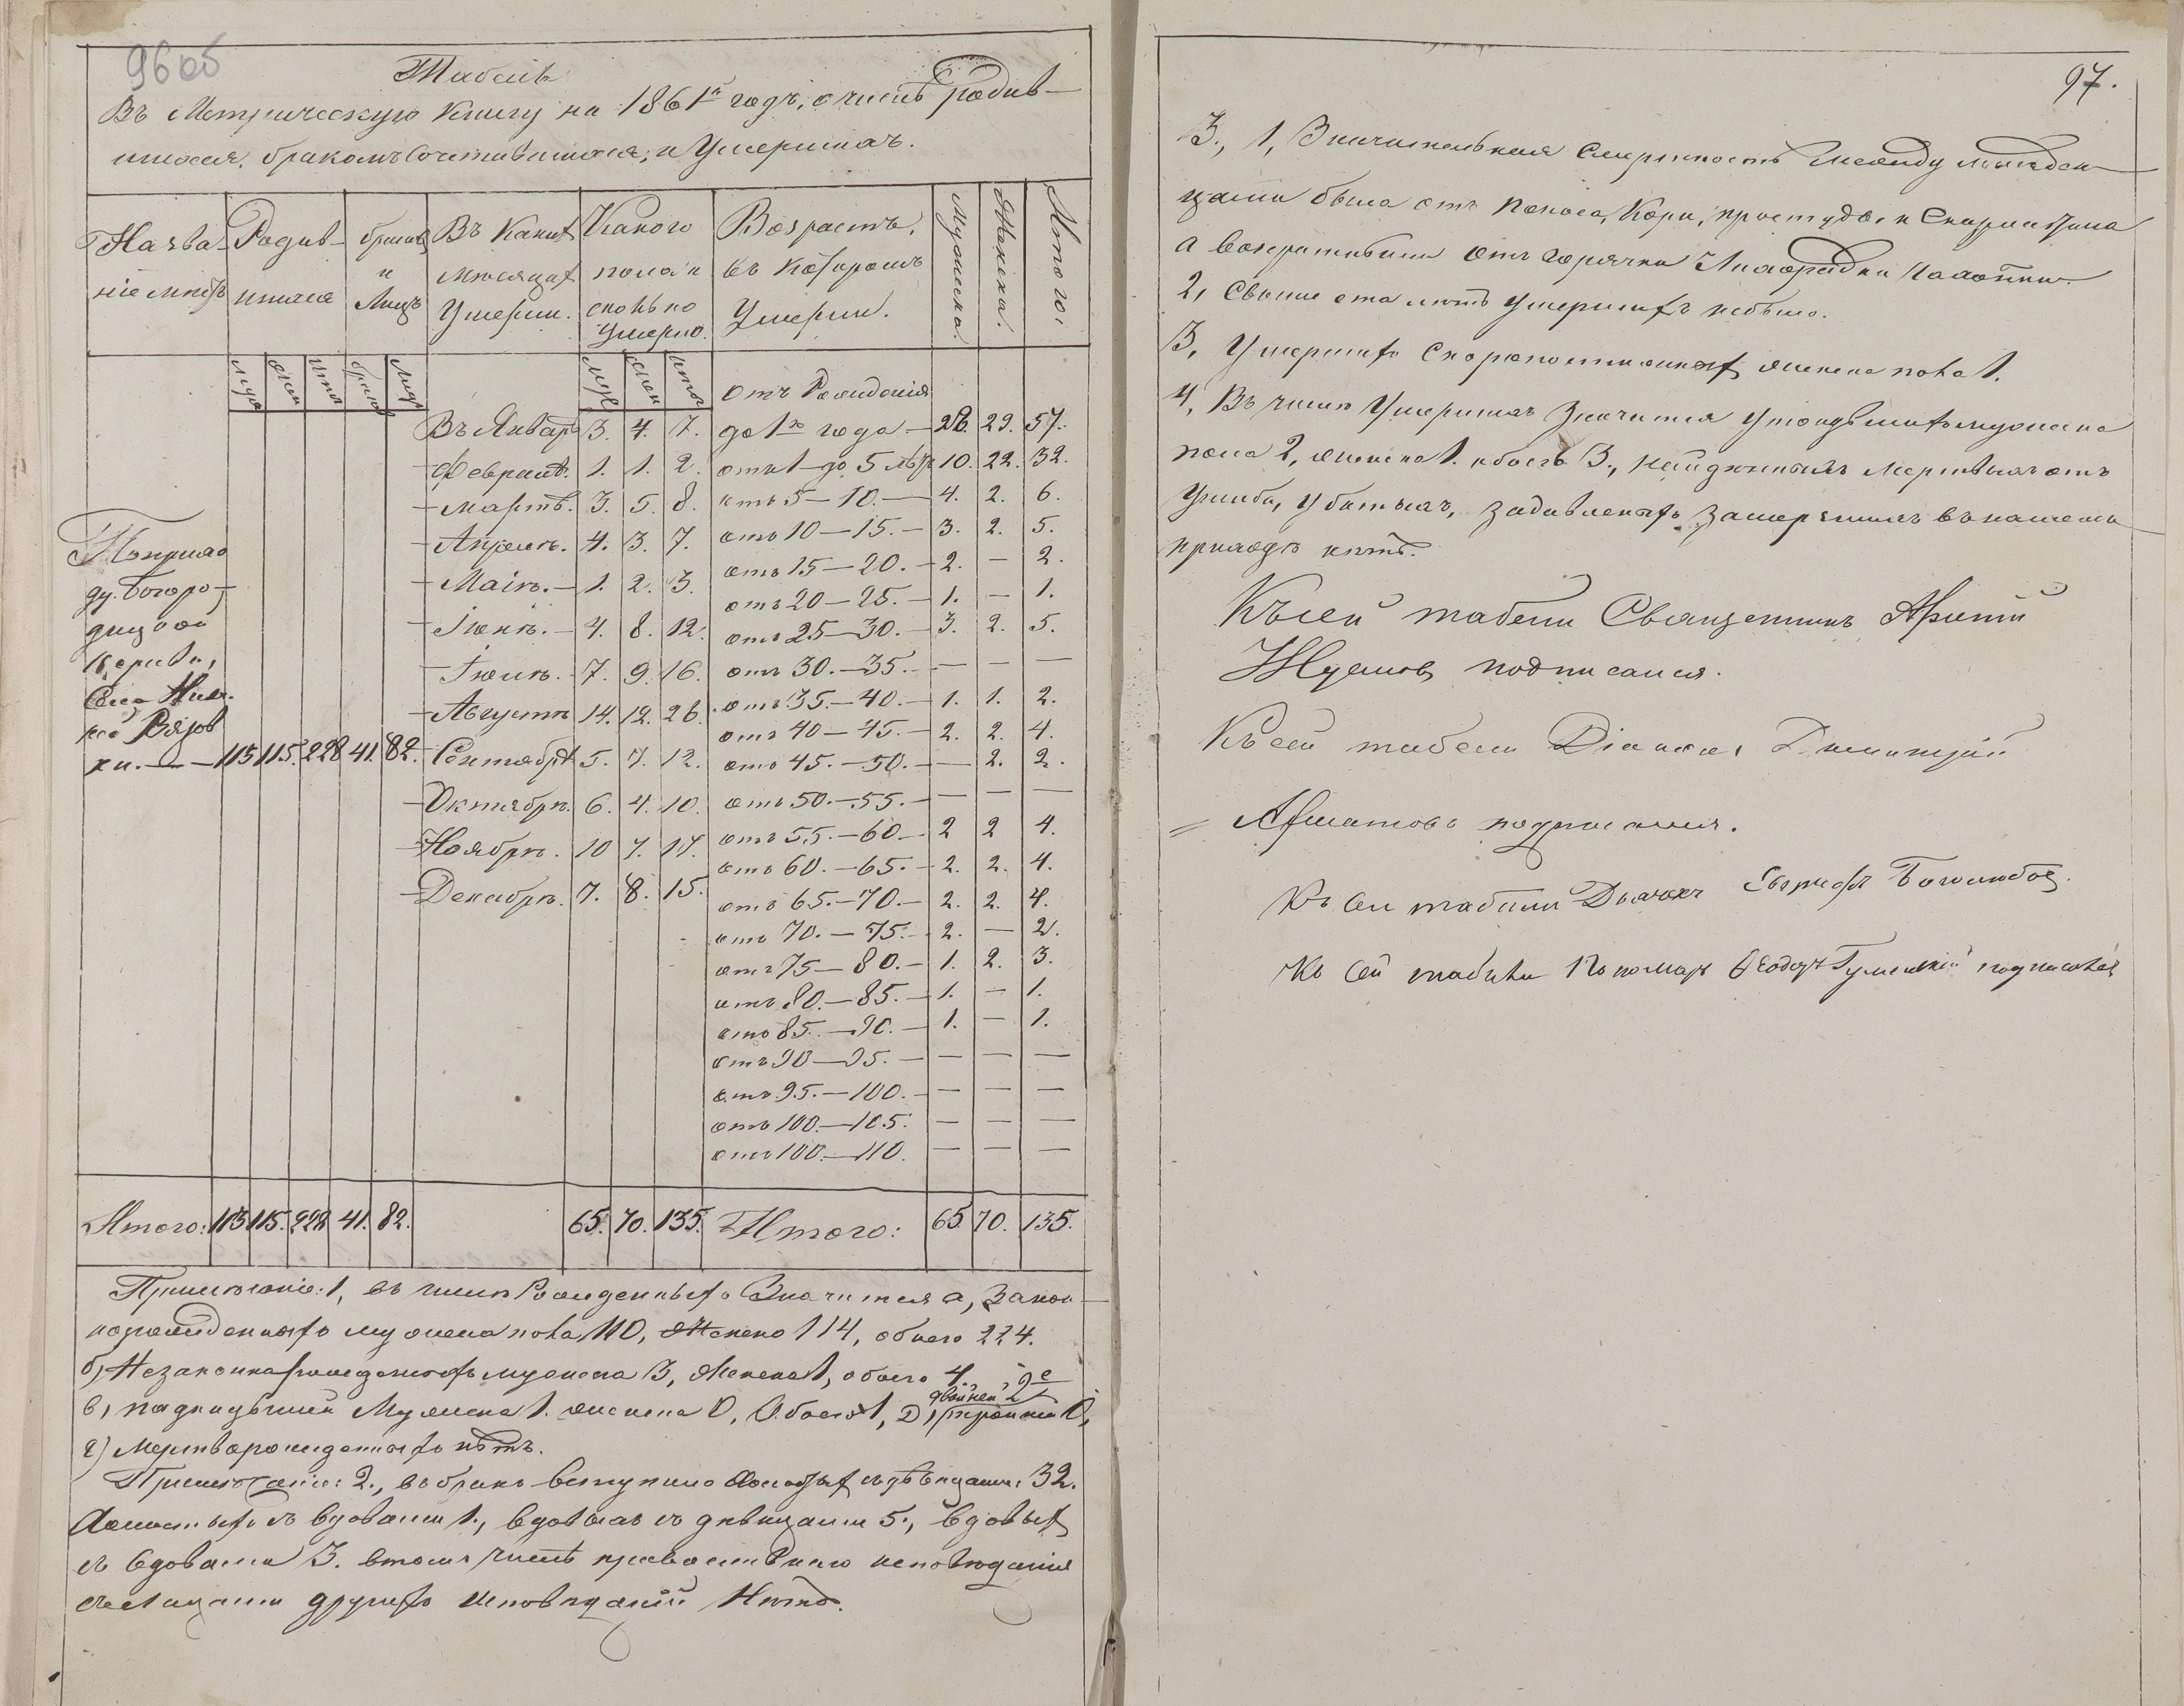 96об
Табель
Въ Метрическую книгу на 1861й годъ, о числѣ родив-
шихся, бракомъ сочетавшихся, и умершихъ.
Назва- Родив- браковъ Въ какихъ Какого Возрастъ, Мужеска. Женска. Итого.
ніе мѣстъ шихся и Лицъ мѣсяцахъ пола и въ которомъ
Умерли. сколько Умерли.
Умерло.
муж жен итог браков Лицъ муж жен итог отъ Рожденія
Въ Январѣ 3. 4. 7. до 1го года — 28. 29. 57.
Февралѣ. 1. 1. 2. отъ 1 до 5 лѣтъ 10. 22. 32.
Мартѣ. 3. 5. 8. отъ 5 — 10. — 4. 2. 6.
Апрелѣ. 4. 3. 7. отъ 10 — 15. — 3. 2. 5.
Маіѣ. — 1. 2. 3. отъ 15 — 20. — 2. — 2.
отъ 20 — 25. — 1. — 1.
Іюнѣ. — 4. 8. 12. отъ 25 — 30. — 3. 2. 5.
Іюлѣ. — 7. 9. 16. отъ 30. — 35. — — — —
Августѣ 14. 12. 26. отъ 35. — 40. — 1. 1. 2.
отъ 40 — 45. — 2. 2. 4.
По прихо
ду Богоро-
дицкой
церкви,
Села Ниж.
ней Вязов
ки. — 113 115. 228 41. 82. Сентябрѣ 5. 7. 12. отъ 45. — 50. — — 2. 2.
Октябрѣ. 6. 4. 10. отъ 50. — 55. — — — —
Ноябрѣ. 10 7. 17. отъ 55. — 60 — 2 2 4.
отъ 60. — 65. — 2. 2. 4.
Декабрѣ. 7. 8. 15. отъ 65. — 70. — 2. 2. 4.
отъ 70. — 75. — 2. — 2.
отъ 75 — 80. — 1. 2. 3.
отъ 80. — 85. — 1. — 1.
отъ 85. — 90. — 1. — 1.
отъ 90 — 95. — — — —
отъ 95. — 100. — — — —
отъ 100. — 105. — — —
отъ 100. — 110. — — —
Итого: 113 115. 228 41. 82. 65. 70. 135. Итого: 65 70. 135.
Примѣчаніе: 1, въ числѣ Рожденныхъ Значится а, Закон-
норожденныхъ мужеска пола 110, Женска 114, обоего 224.
б, Незаконнорожденныхъ мужеска 3, Женска 1, обоего 4.
двойней 2е
в, подкидышей Мужеска 1. женска 0, Обоего 1, Д, тройней 0,
г) Мертворожденныхъ нѣтъ.
Примѣчаніе: 2., въ бракъ вступило Холостыхъ съ дѣвицами 32.
Холостыхъ съ вдовами 1., вдовыхъ съ дѣвицами 5., вдовыхъ
съ вдовами 3. втомъ числѣ православнаго исповѣданія
съ лицами другихъ исповѣданій Нѣтъ.
97.
3., 1, Значительная смертность между младен-
цами была отъ поноса, Кори, простуды и Скарлатина
а возрастными отъ горячки Лихорадки Чахотки.
2, Свыше ста лѣтъ умершихъ небыло.
3, Умершихъ Скоропостижно женска пола 1.
4, Въ числѣ Умершихъ Значится утопшихъ мужеска
пола 2, женска 1. обоего 3., найденныхъ мертвыхъ отъ
ушиба, убитыхъ, задавленныхъ замерзшихъ въ нашемъ
приходѣ нѣтъ.
Къ сей табели Священникъ
подписался.
Къ сей табели Діаконъ Димитрій
подписался.
Къ сей табели Дьячекъ
Къ сей табели Пономарь Ѳеодоръ подписался